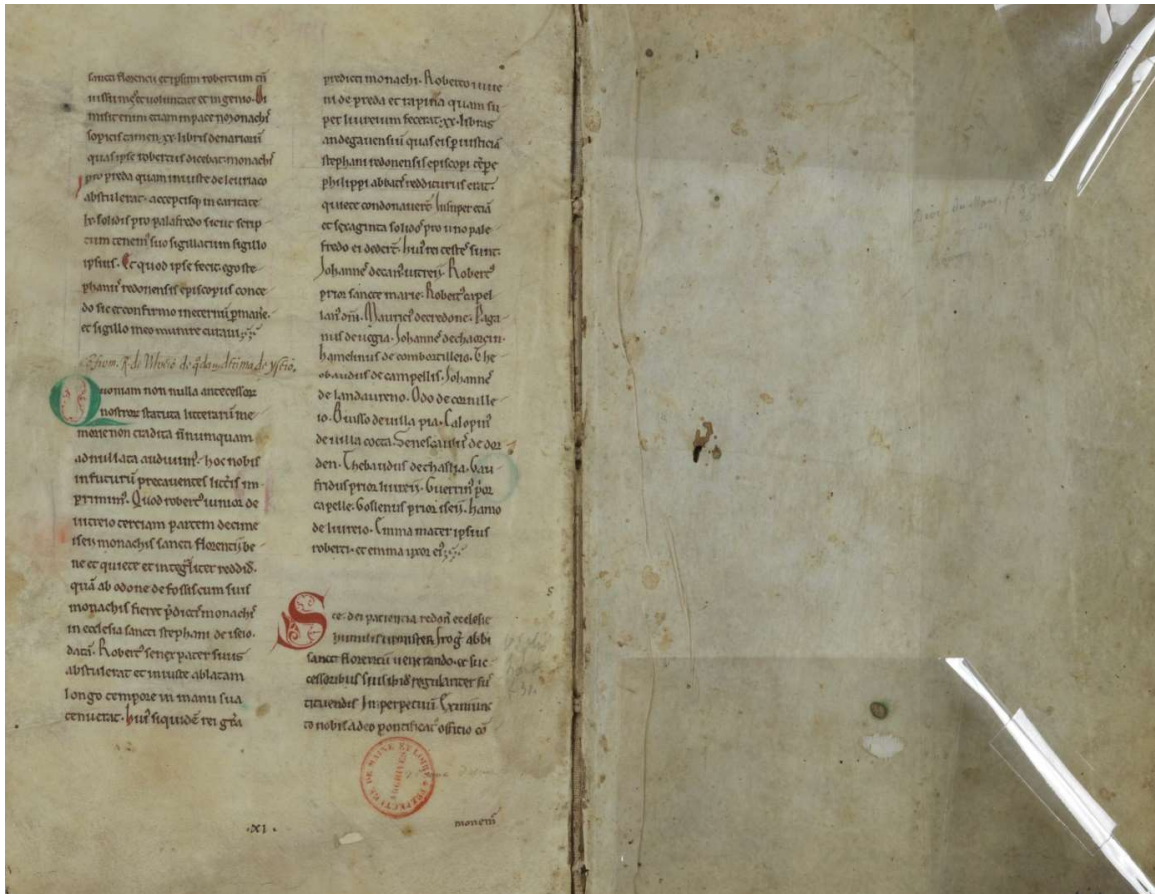 sancti florencii et ipsum robertum cū
iussu meo et voluntate et ingenio. Di
misit enim etiam in pace monachis
sopitis tamen .xx. libris denariorū
quas ipse robertus dicebat monachis
pro preda quam iniuste de leuriaco
abstulerat acceptisq in caritate
lx. solidis pro palafredo sicut scrip
tum tenent suo sigillatum sigillo
ipsius. Et quod ipse fecit ego ste
phanus redonensis episcopus conce
do sic et confirmo in eternū pmane
et sigillo meo curaui
Quoniam non nulla antecessor
nostror statuta litterarū me
morie non tradita nūmquam
ad nullata audiuim. hoc nobis
in futurū precauentes littis im
primim. Quod robert iunior de
uitreio terciam partem decime
isei monachis sancti florentii be
ne et quiete et integliter reddid.
quā ab odone de fossis cum suis
monachis fieret pdictis monachis
in ecclesia sancti stephani de iseio.
datā. Robert senex pater suus
abstulerat et iniuste ablatam
longo tempore in manu sua
tenuerat. hui siquidē rei gra
.XI.
predicti monachi. Roberto iuue
ni de preda et rapina quam su
per liureium fecerat .xx. libras
andegauensiū quas eis p iusticiā
stephani redonensis episcopi tēpe
philippi abbatis redditurus erat.
quiete condonauerē. Insuper etiā
et sexaginta solidos pro uno pale
fredo ei dederē. hui rei testes sunt.
Johannes decan uitreii. Robert
prior sancte marie. Robert capel
lan Mauricius de redone. Paga
nus de uegia. Johannes de
hamelinus de combortilleio. The
obaudus de campellis. Johannes
de landaureno. Odo de cornille
io. Guisso de uilla pia. Calopin
de uilla cocta. Senescaut de dor
den. Thebaudus de chastra. Gau
fridus prior liureii. Guerrin por
capelle. Goslenus prior iseii. hamo
de liureio. Emma mater ipsius
roberti. et emma uxor ei
Ste. dei paciencia redon ecclesie
humilis minister frog abbi
sancti florencii uenerando. et suc
cessoribus suis ibid regulariter su
tituendis Inperpetuū. Eximiuc
to nobis adeo pontificat officio cō
PREFECTURE DE MAINE ET LOIRE
ARCHIVES
monem